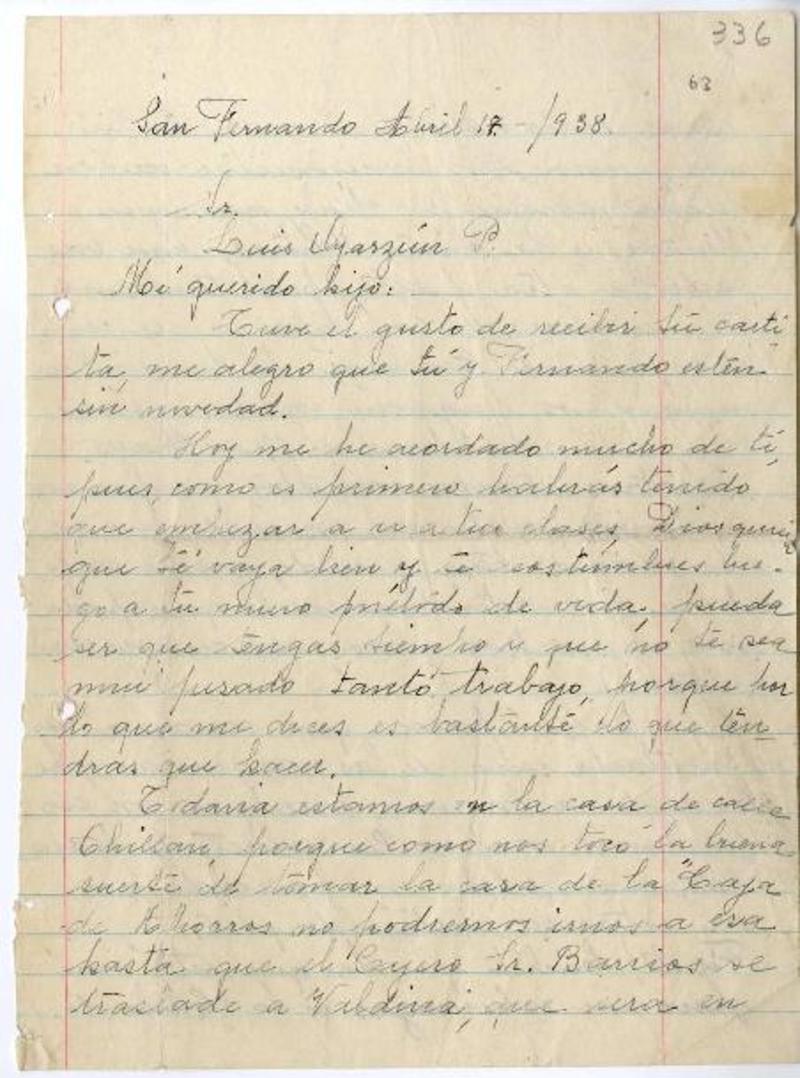 336
63
San Fernando Abril 17 - /938.
Sr.
Luis Oyarzún P.
Mi querido hijo:
Tuve el gusto de recibir tú carti
ta, me alegro que tú y Fernando estén
sin novedad.
Hoy me he acordado mucho de tí,
pues, como es primero habrás tenido
que empezar a ir a tus clases, Dios quiera
que té vaya bien y té costúmbres lue-
go a tú nuevo método de vida; pueda
ser que tengas tiempo y que no té sea
mui pesado tantó trabajo, porque por
lo que me dices es bastanté lo que tén
dras que hacer.
Todavia estamos en la casa de calle
Chillán, porque como nos tocó la buena
suerté de tómar la casa de la "Caja
de Ahorros no podremos irnos a esa
hasta que el Cajero Sr. Barrios se
traslade a Valdivia, que sera en